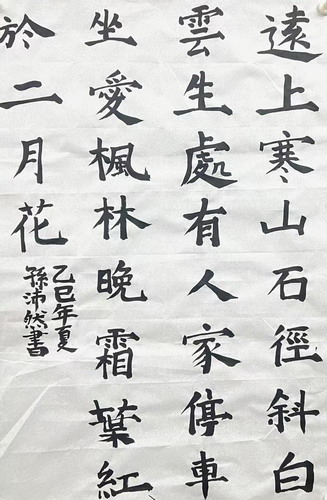 遠上寒山石徑斜白
雲生處有人家停車
坐愛楓林晚霜葉紅
於二月花
乙巳年夏
孫沛然書